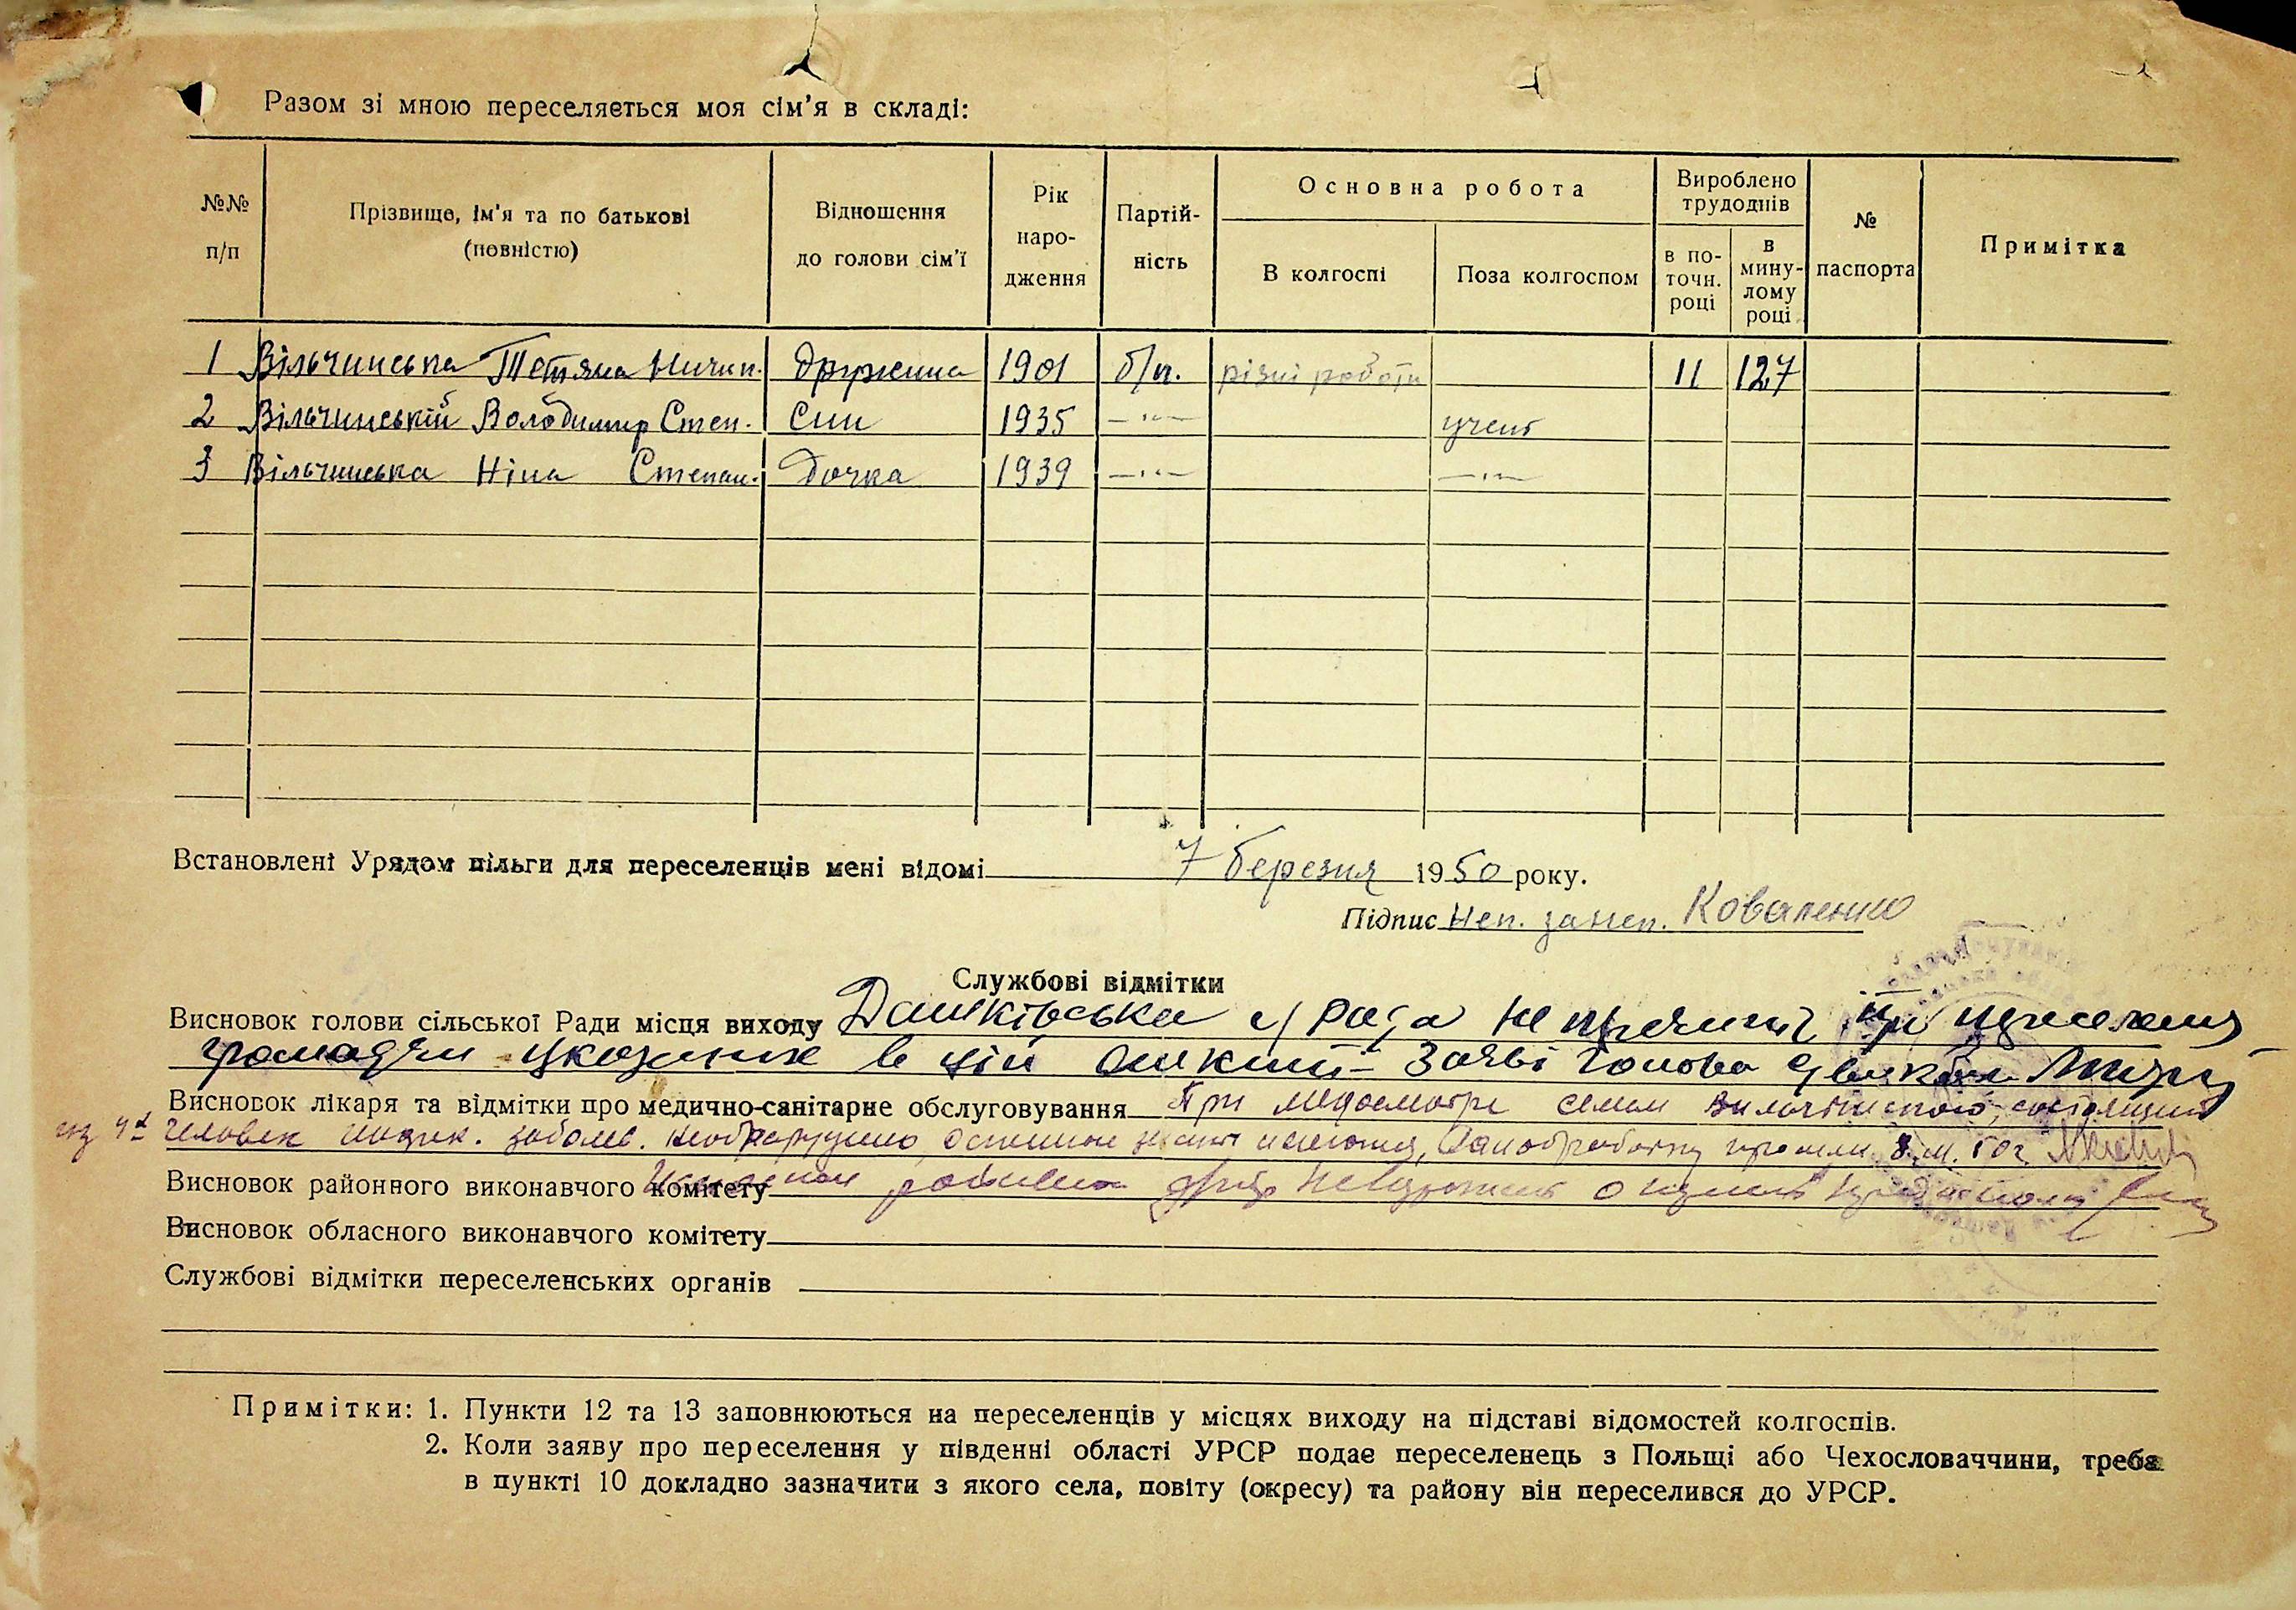 Разом зі мною переселяеться моя сім'я в складі:
№№ п/п
Прізвище, ім'я та по батькові (повністю)
Відношення до голови сім'ї
Рік наро-дження
Партій-ність
Основна робота
В колгоспі
Поза колгоспом
Вироблено трудоднів
в по-точн. році
в мину-лому році
№ паспорта
Примітка
1 Вільчинська Тетяна Ничип. Дружина 1901 б/п. різні роботи 11 127
2 Вільчинській Володимир Степ. Син 1935 —"— учень
3 Вільчинська Ніна Степан. Дочка 1939 —"— —"—
Встановлені Урядом пільги для переселенців мені відомі 7 березня 1950 року.
Підпис Неп. запеп. Коваленко
Службові відмітки
Висновок голови сільської Ради місця виходу Дашківська с/рада
громадян в цій заяві Голова
Висновок лікаря та відмітки про медично-санітарне обслуговування При медосмотре семьи состоящей
из 4х человек инфек. заболев. необнаружено, Санобработку прошли 8.III.50г.
Висновок районного виконавчого комітету
Висновок обласного виконавчого комітету
Службові відмітки переселенських органів
Примітки: 1. Пункти 12 та 13 заповнюються на переселенців у місцях виходу на підставі відомостей колгоспів.
2. Коли заяву про переселення у південні області УРСР подає переселенець з Польщі або Чехословаччини, треба
в пункті 10 докладно зазначити з якого села, повіту (окресу) та району він переселився до УРСР.